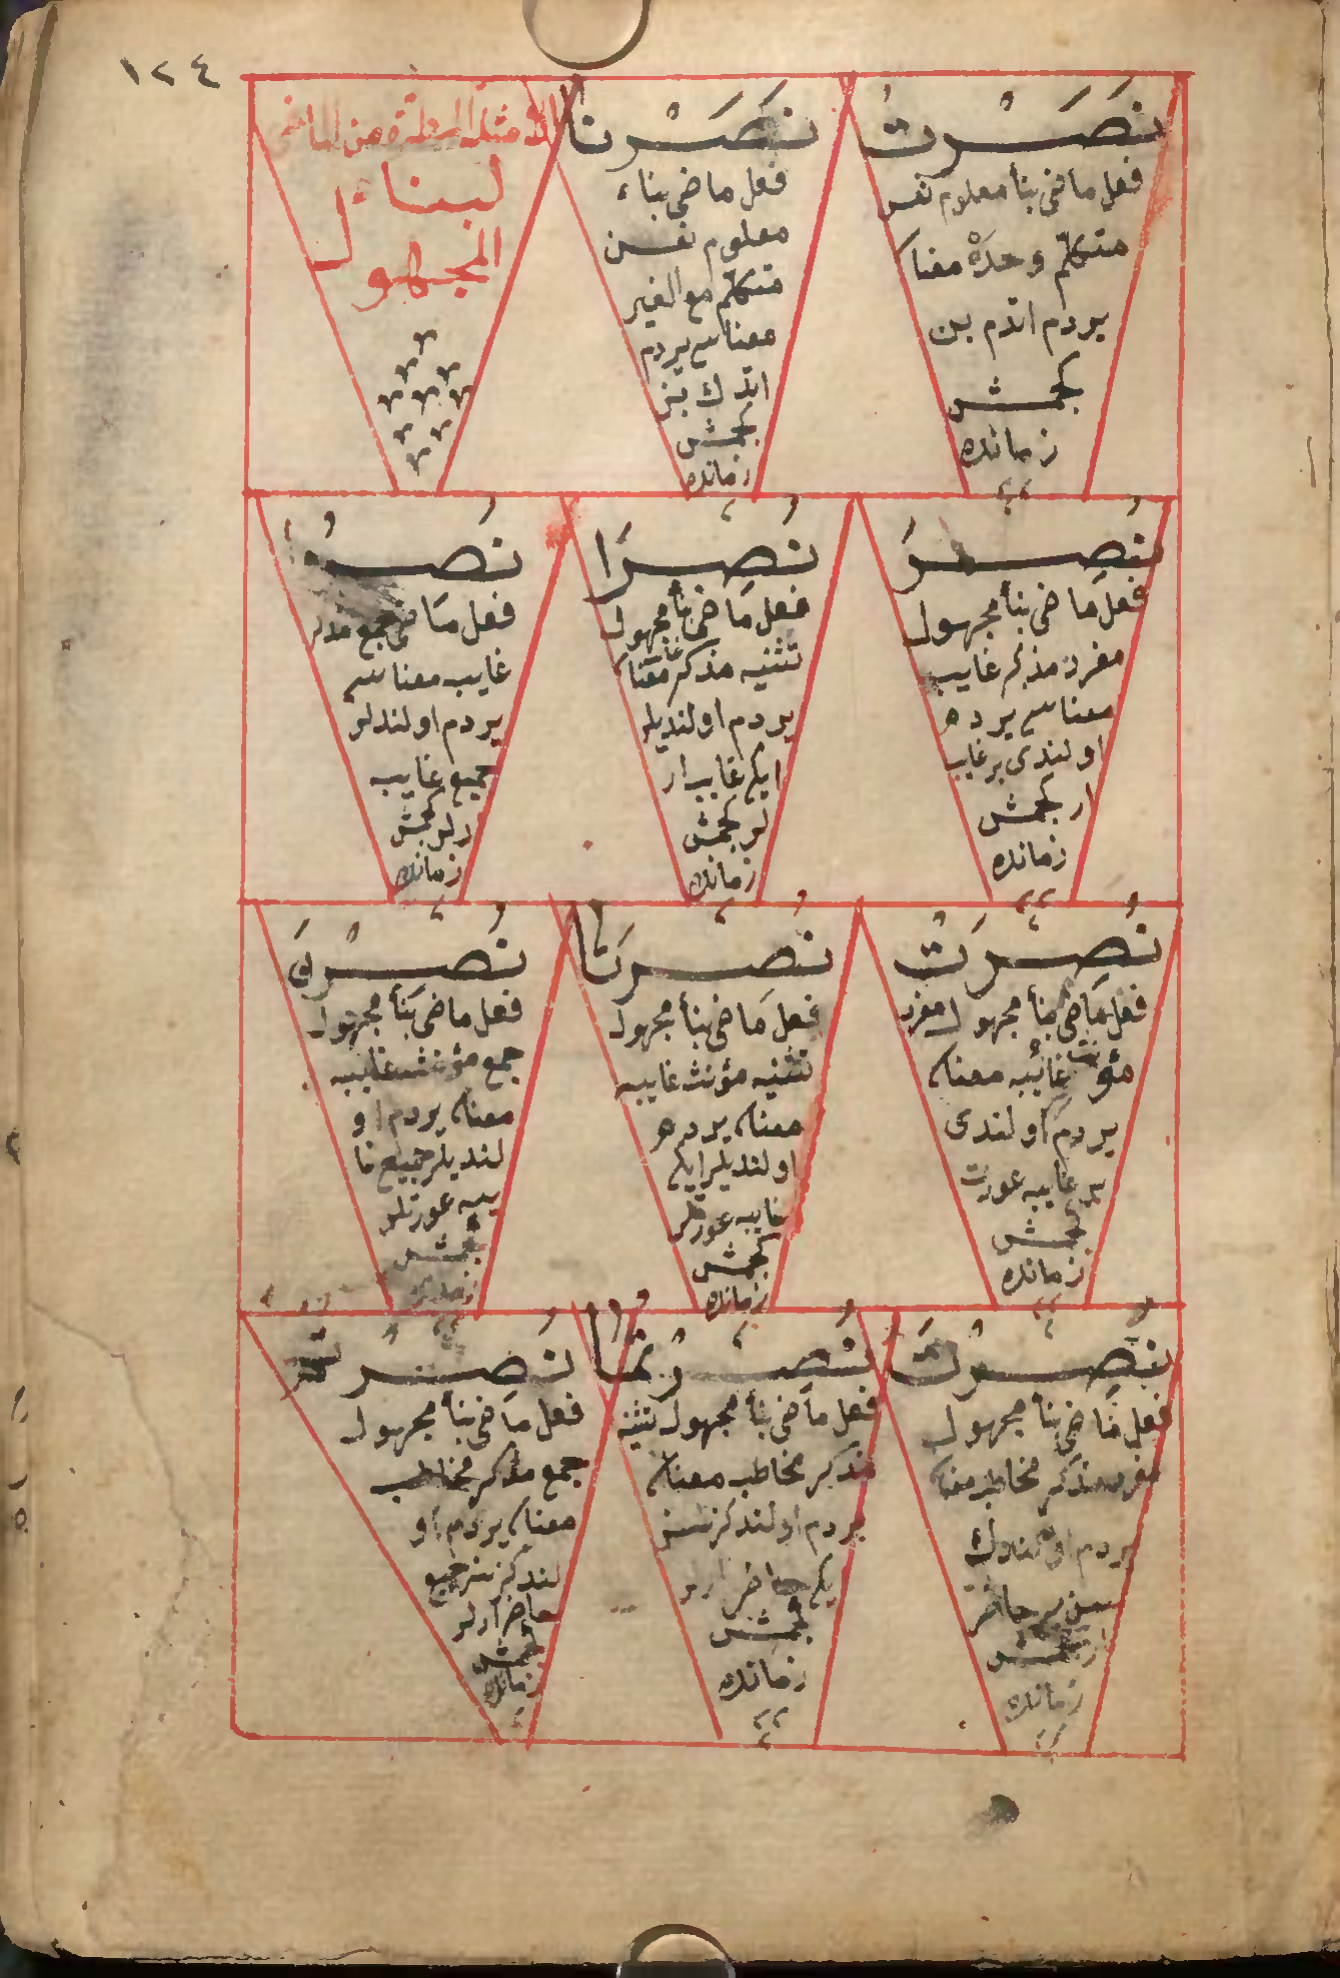 ١٢٤
نَصَرْتُ
فعل ماضى بنأ معلوم نفس
متكلّم وحدَهْ معناسى
يردم اتدم بن
كجمش
زمانده
نَصَرْنا
فعل ماضى بناء
معلوم نفس
متكلّم مع الغير
معناسى يردم
اتدك بز
كجمش
زمانده
الأمثلة المطردة من الماضى
لبناء ل
المجهول
نُصِرَ
فعل ماضى بنأ مجهول
مفرد مذكر غايب
معناسى يردم
اولندى بر غايب
ار كجمش
زمانده
نُصِرَا
فعل ماضى بنأ مجهول
تثنيه مذكر غايب معناسى
يردم اولنديلر
ايكى غايب ار
لر كجمش
زمانده
نُصِرُوا
فعل ماضى جمع مذكر
غايب معناسى
يردم اولندلر
جميع غايب
رلر كجمش
زمانده
نُصِرَتْ
فعل ماضى بنأ مجهول مفرد
مؤنث غايبه معناسى
يردم اولندى
بر غايبه عورت
كجمش
زمانده
نُصِرَتَا
فعل ماضى بنأ مجهول
تثنيه مؤنث غايبه
معناسى يردم
اولنديلر ايكى
غايبه عورتلر
كجمش
زمانده
نُصِرْنَ
فعل ماضى بنأ مجهول
جمع مؤنث غايبه
معناسى يردم او
لنديلر جميع غا
يبه عورتلر
كجمش
زمانده
نُصِرْتَ
فعل ماضى بنأ مجهول
مفرد مذكر مخاطب معناسى
يردم اولندك
سن بر حاضر
ار كجمش
زمانده
نُصِرْتُمَا
فعل ماضى بنأ مجهول تثنيه
مذكر مخاطب معناسى
يردم اولندكز سز
ايكى حاضر ارلر
كجمش
زمانده
نُصِرْتُمْ
فعل ماضى بنأ مجهول
جمع مذكر مخاطب
معناسى يردم او
لندكز سز جميع
حاضر ارلر
كجمش
زمانده